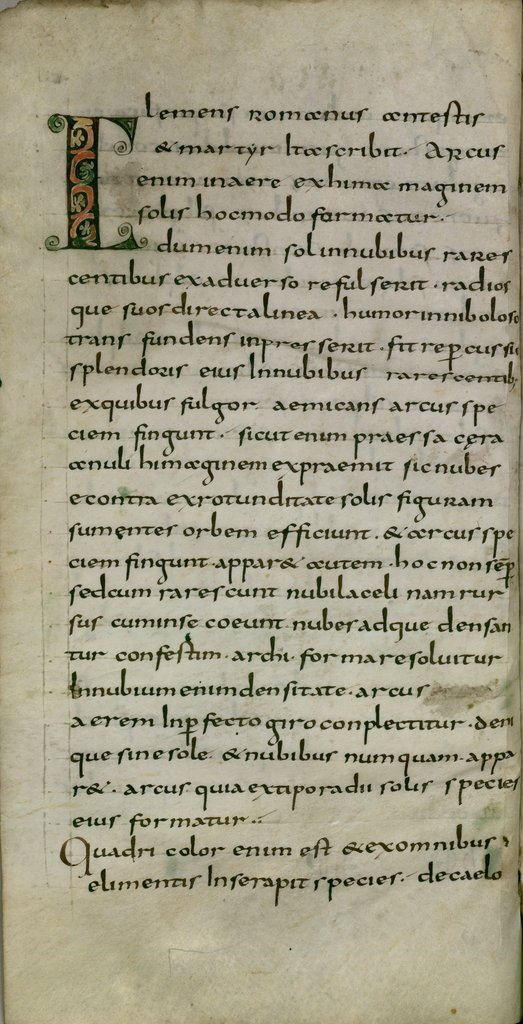 Clemens romanus antestis
& martyr Ita scribit. Arcus
enim in aere ex himaginem
solis hocmodo formatur.
dum enim sol in nubibus rares
centibus ex aduerso refulserit. radios
que suos directa linea. humor in niboloso
trans fundens inpresserit. fit repcussi
splendoris eius Innubibus rarescentib;
exquibus fulgor aemicans arcus spe
ciem fingunt. sicut enim praessa cęra
anuli himaginem expraemit sic nubes
econtra exrotunditate solis figuram
sumentes orbem efficiunt. & arcus spe
ciem fingunt. appar& autem. hoc non semp
sed cum rarescunt nubila celi nam rur
sus cum inse coeunt. nubes adque densan
tur confestim. archi. forma resoluitur
Innubium enim densitate. arcus
aerem Inpfecto giro conplectitur. deni
que sine sole. & nubibus numquam. appa
r&. arcus quia extipo radii solis species
eius formatur..
Quadri color enim est & exomnibus
elimentis Inse rapit species. de caelo